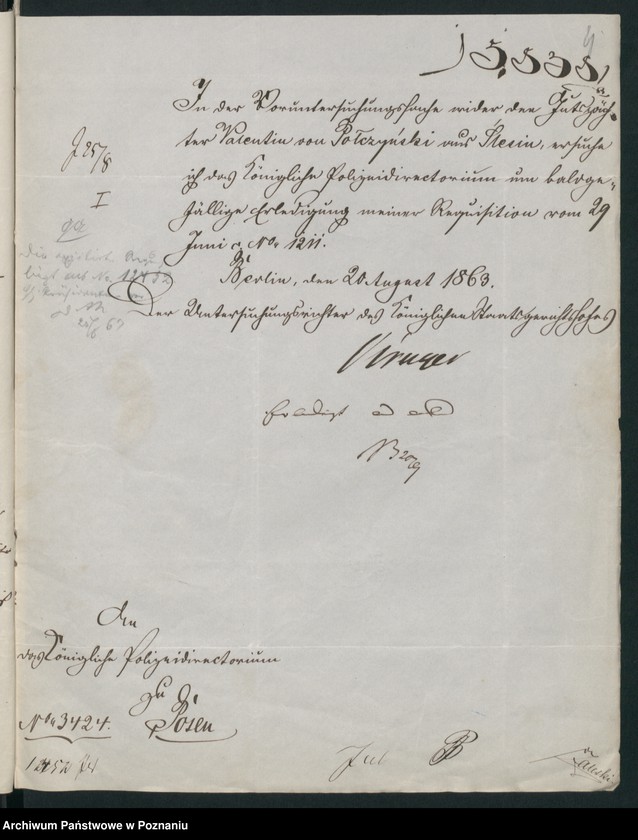 15,838/
4
In der Voruntersuchungssache wider den Gutspäch-
ter Valentin von Połczyński aus Slesin, ersuche
ich das Königliche Polizeidirectorium um baldge-
fällige Erledigung meiner Requisition vom 29
Juni c, No. 1211.
Berlin, den 20 August 1863.
Der Untersuchungsrichter des Königlichen Staatsgerichtshofes
Krueger
J 25/8
I
12452
Erledigt
An
das Königliche Polizeidirectorium
zu
Posen
No. 3424.